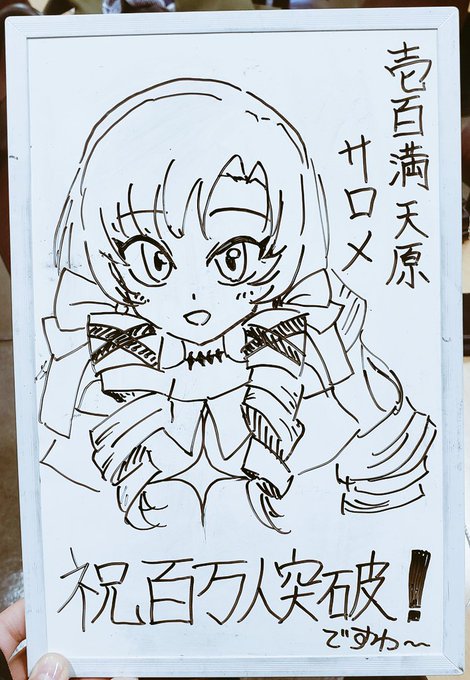 壱百満天原
サロメ
祝百万人突破!
ですわ〜